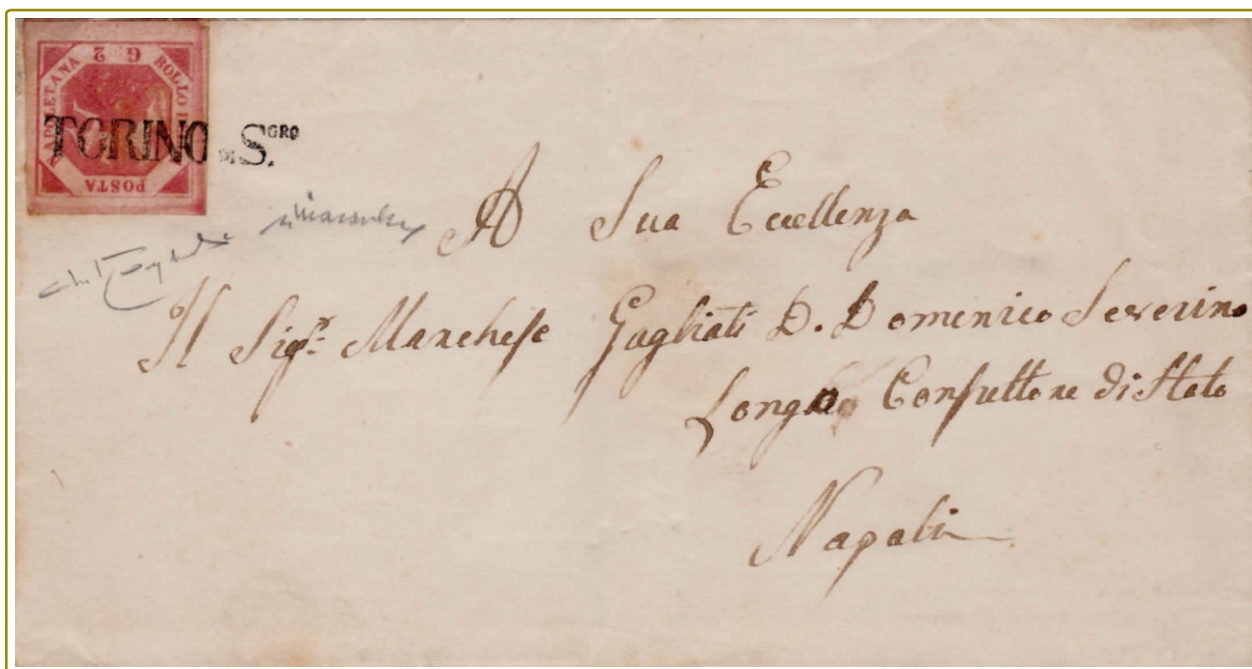 G 2
BOLLO D
POSTA
NAPOLETANA
TORINO DI S.GRO
A Sua Eccellenza
Il Sigr. Marchese Gagliati D. Domenico Severino
Longo Consultore di Stato
Napoli